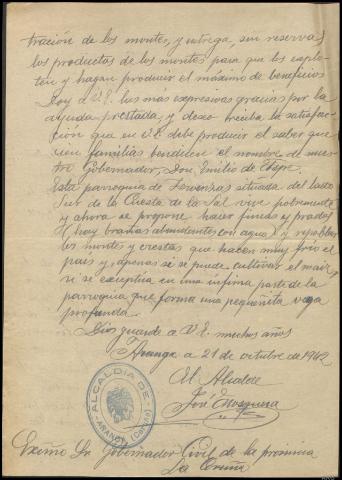 tración de los montes, y entrega, sin reservas
los productos de los montes para que los explo-
ten y hagan producir el máximo de beneficios
Doy a V.E. las más expresivas gracias por la
ayuda prestada, y deseo reciba la satisfac-
ción que en V.E. debe producir el saber que
cien familias bendicen el nombre de nues-
tro Gobernador, Don Emilio de Aspe.
Esta parroquia de Fervenzas situada del lado
Sur de la Cuesta de la Sal vive pobremente
y ahora se propone hacer fincas y prados
(hoy brañas abundantes con agua) y repoblar
los montes y crestas que hacen muy frío el
pais y, apenas si se puede cultivar el maiz,
si se exceptúa en una ínfima parte de la
parroquia que forma una pequeñita vega
profunda.
Dios guarde a V.E. muchos años
Aranga a 21 de octubre de 1942
El Alcalde
José Mosquera
ALCALDIA DE
ARANGA (CORUÑA)
Exmo Sr Gobernador Civil de la provincia
La Coruña